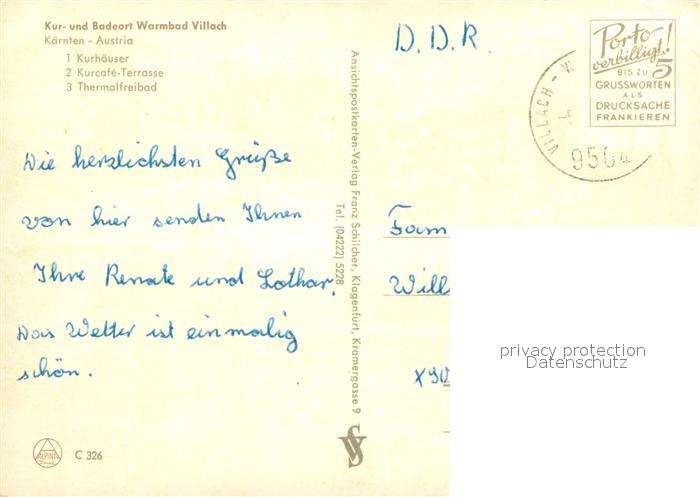 Kur- und Badeort Warmbad Villach
Kärnten - Austria
1 Kurhäuser
2 Kurcafé-Terrasse
3 Thermalfreibad
Die herzlichsten Grüße
von hier senden Ihnen
Ihre Renate und Lothar.
Das Wetter ist einmalig
schön.
ALPINA
C 326
Ansichtspostkarten-Verlag Franz Schilcher, Klagenfurt, Kramergasse 9
Tel. (04222) 5228
D. D. R.
VILLACH - W
9504
Porto
verbilligt!
BIS ZU 5
GRUSSWORTEN
ALS
DRUCKSACHE
FRANKIEREN
Fam
Will
X90
privacy protection
Datenschutz